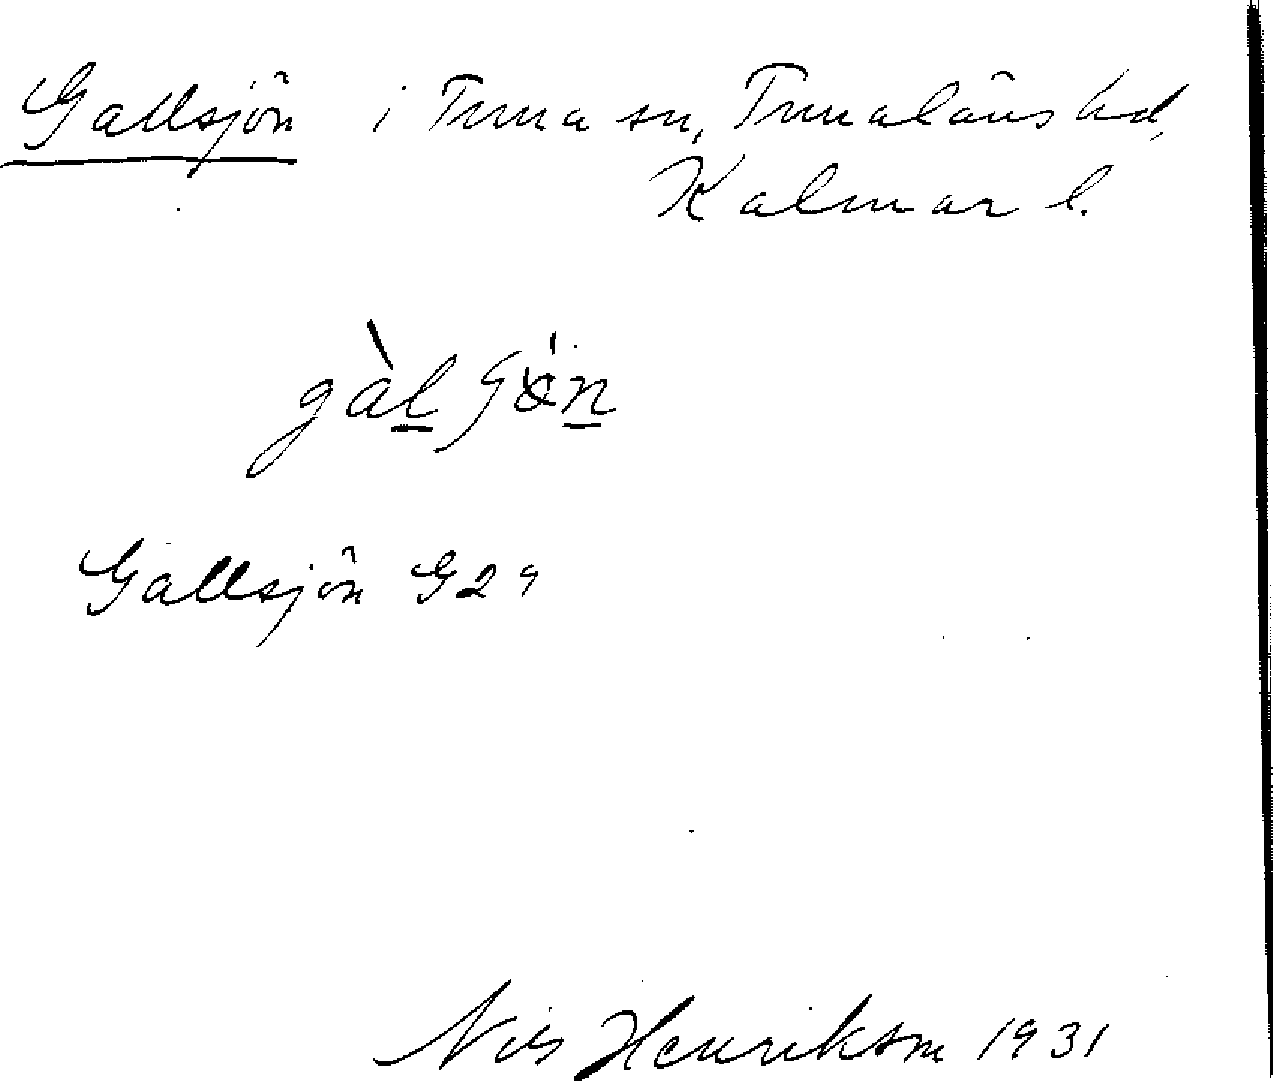 Gallsjön i Tuna sn, Tunaläns hd,
Kalmar l.
Gallsjön G 29
Nils Henrikson 1931